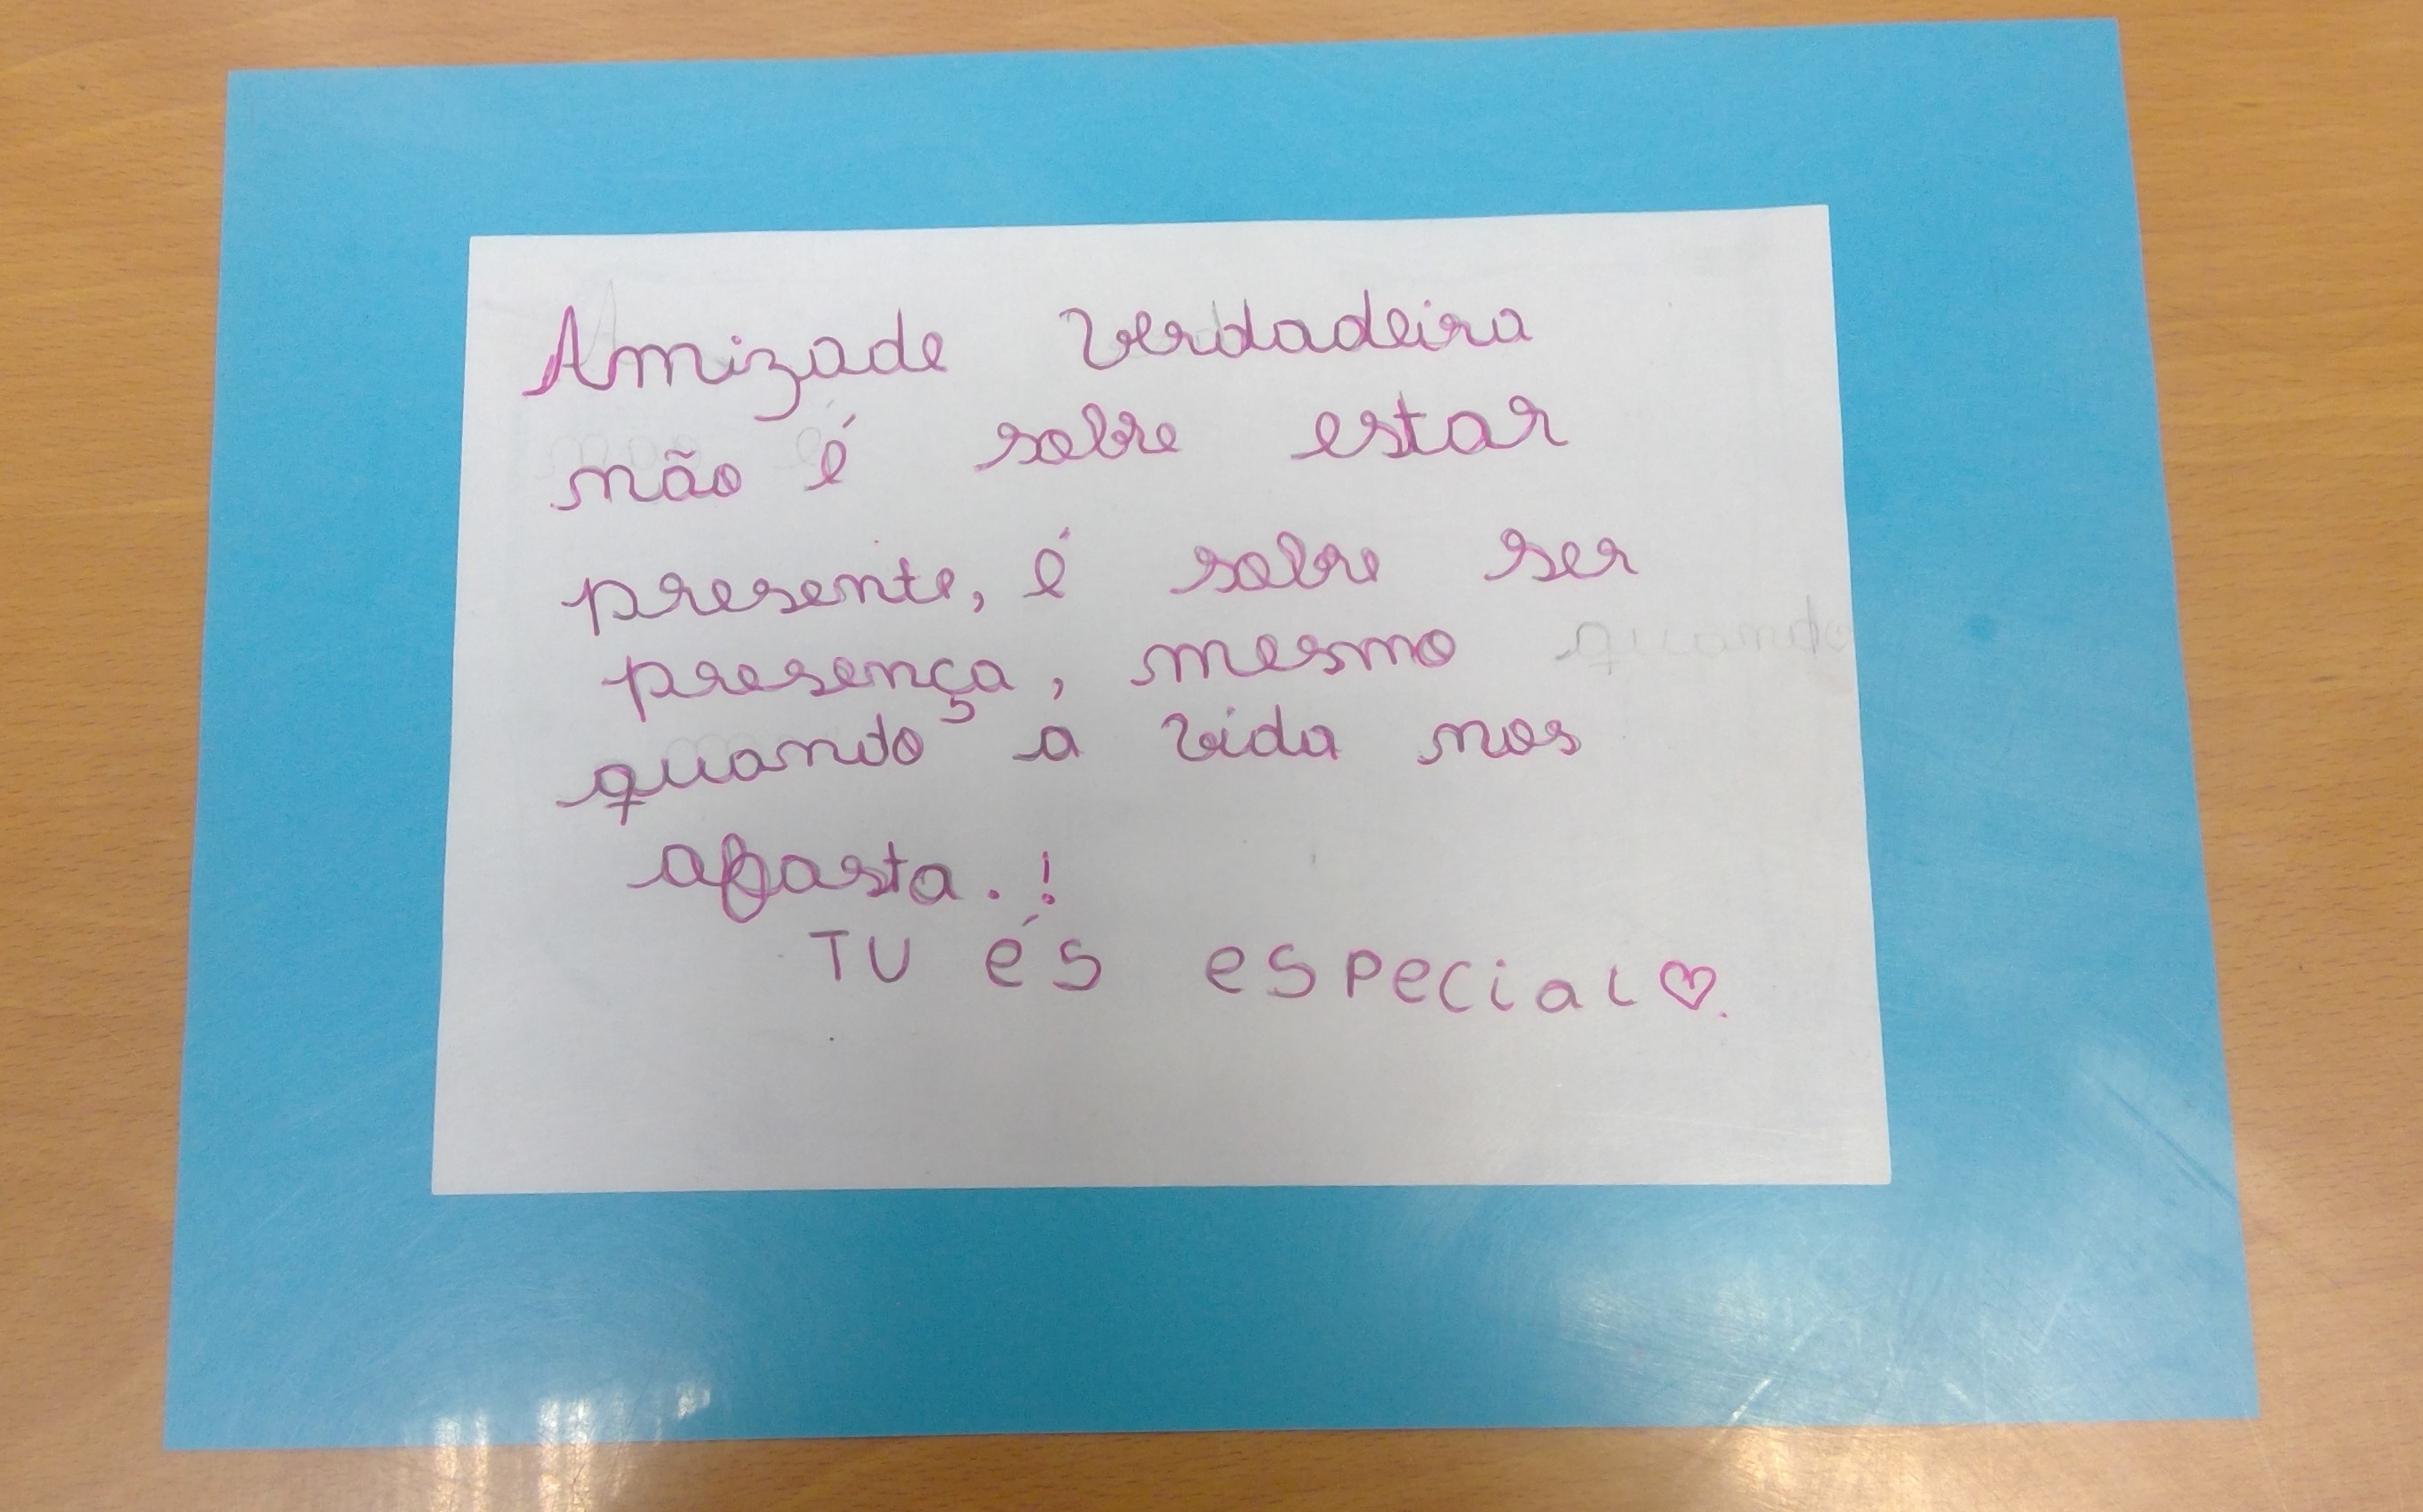 Amizade verdadeira
não é sobre estar
presente, é sobre ser
presença, mesmo quando
quando a vida nos
afasta.!
TU és especial♡.